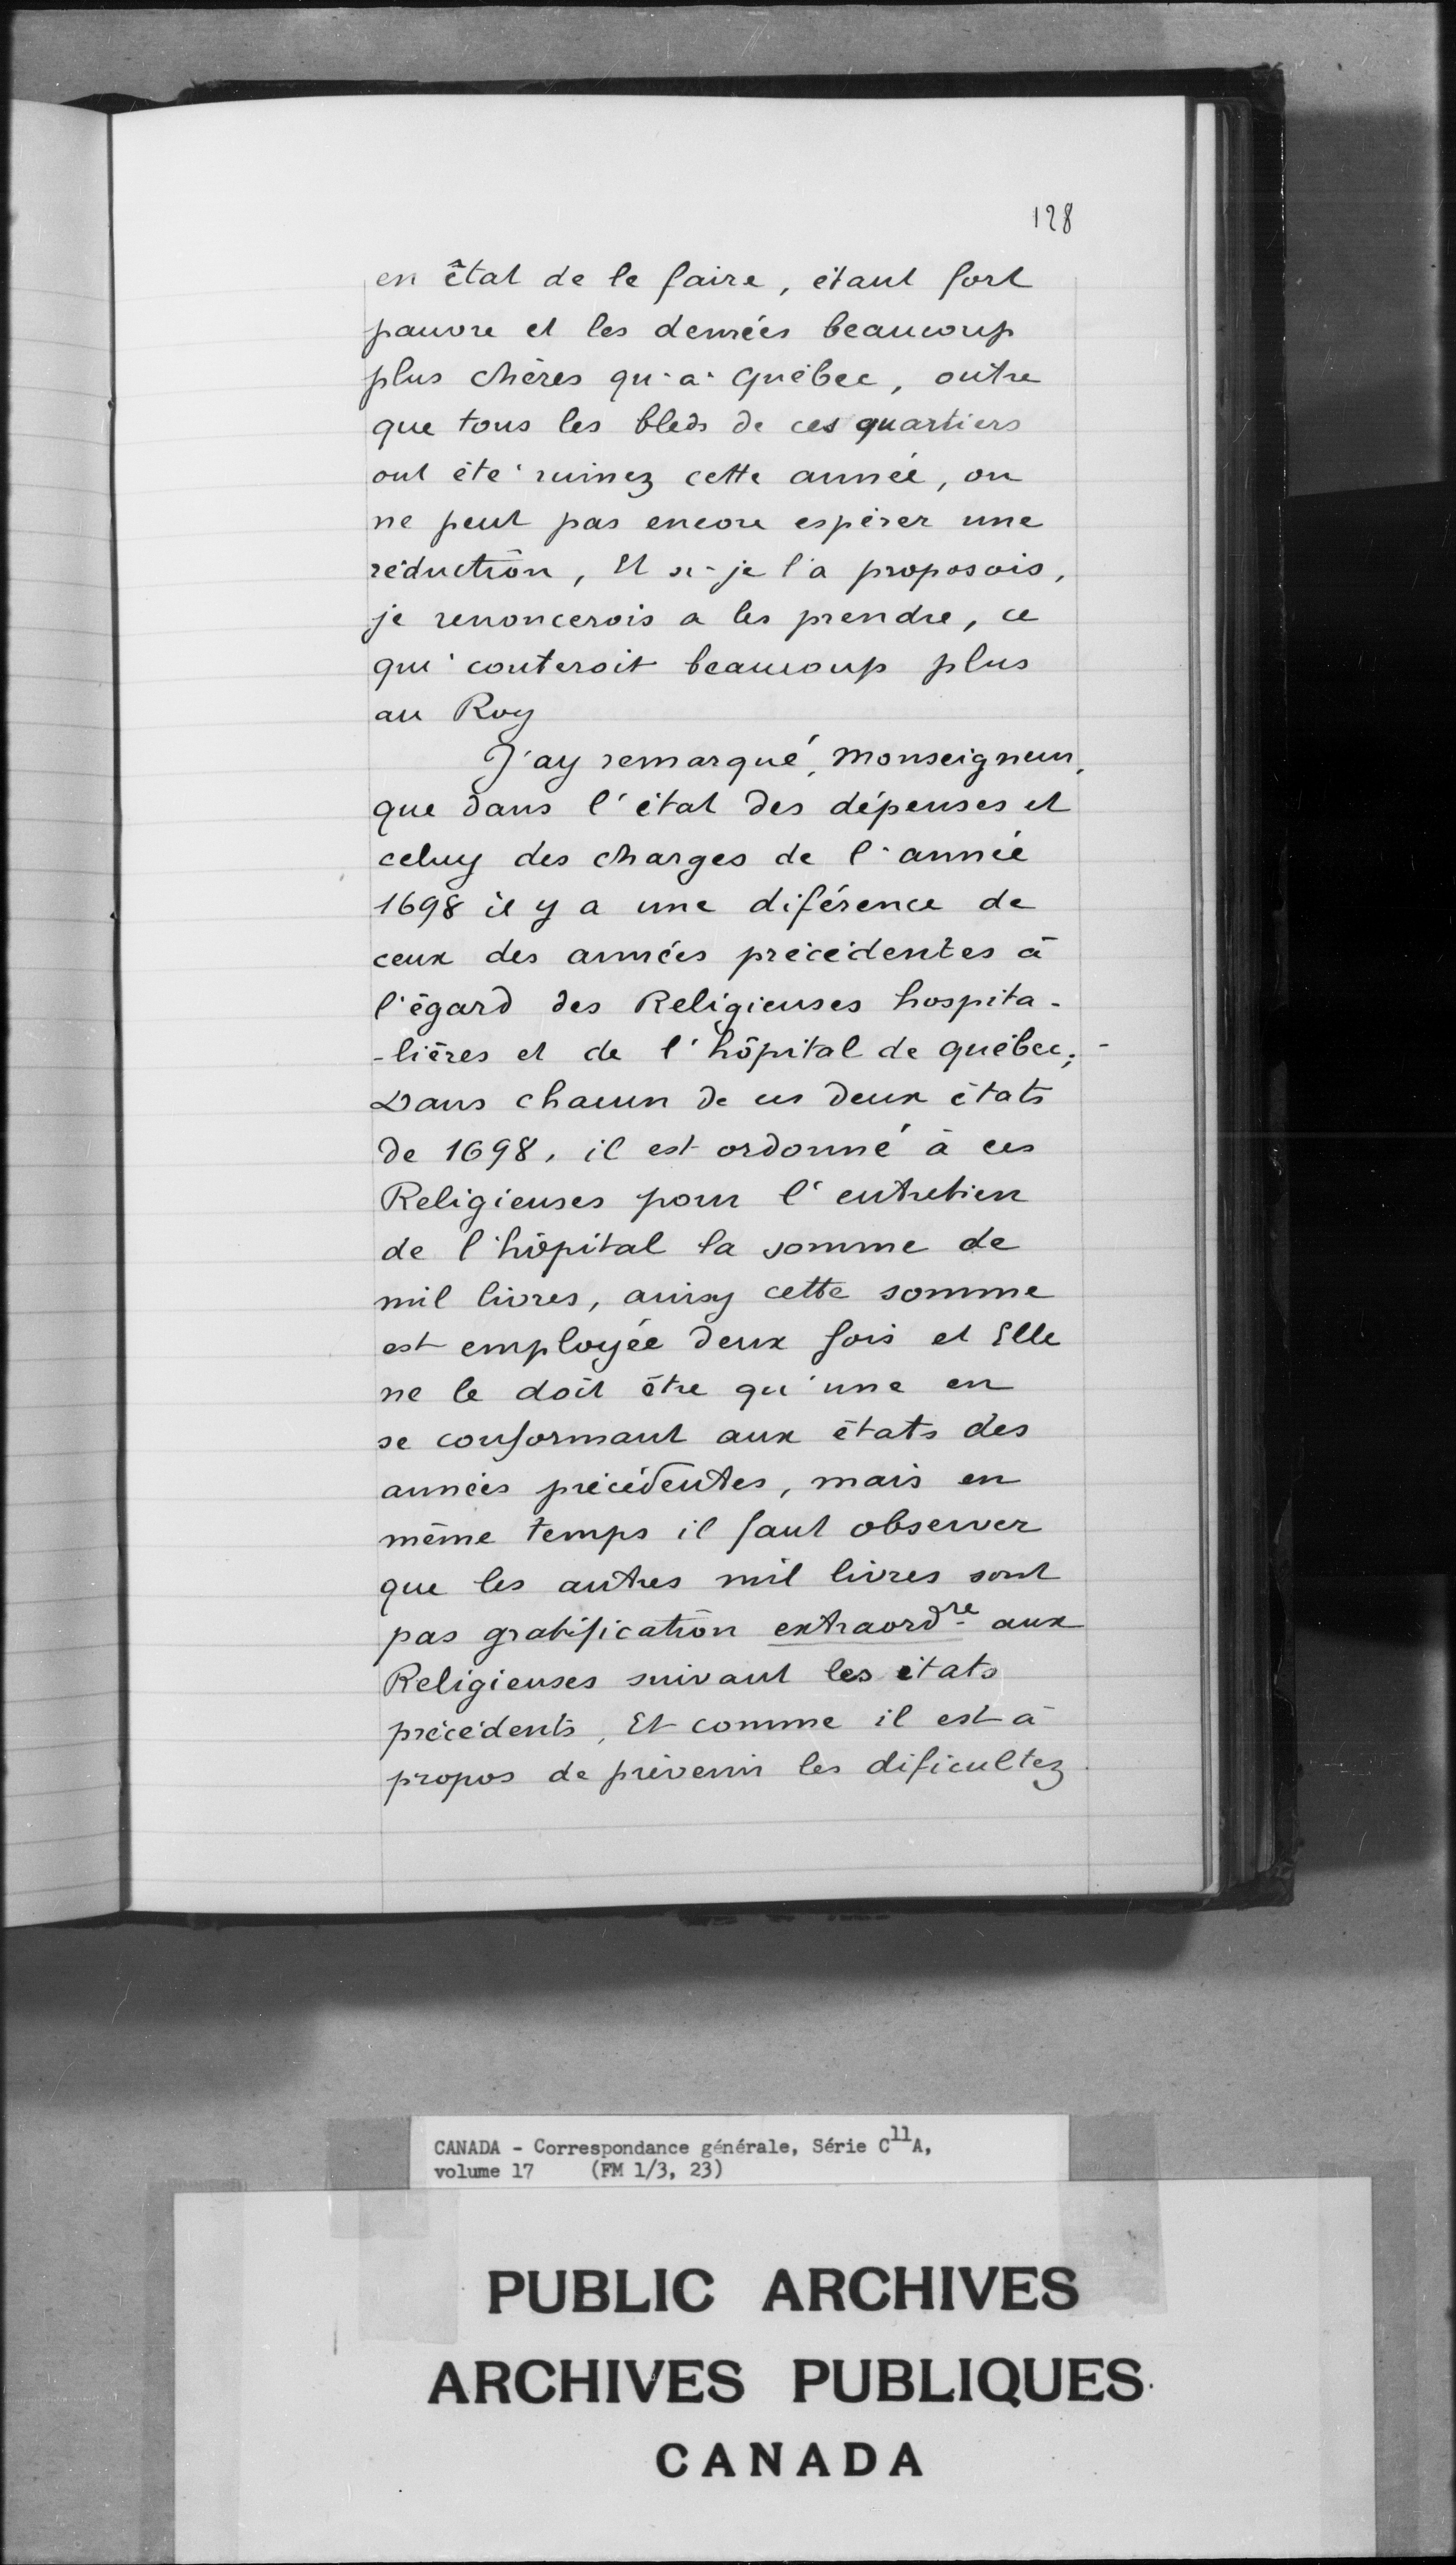 128
en êtat de le faire, étant fort
pauvre et les denrées beaucoup
plus chères qu'a Québec, outre
que tous les bleds de ces quartiers
ont été ruinez cette année, on
ne peut pas encore espérer une
réduction, Et si je l'a proposois,
je renoncerois a les prendre, ce
qui couteroit beaucoup plus
au Roy
J'ay remarqué, Monseigneur,
que dans l'état des dépenses et
celuy des charges de l'année
1698 il y a une diférence de
ceux des années précédentes à
l'égard des Religieuses hospita-
-lières et de l'hôpital de québec;
Dans chacun de ces deux états
de 1698, il est ordonné à ces
Religieuses pour l'entretien
de l'hôpital la somme de
mil livres, ainsy cette somme
est employée deux fois et Elle
ne le doit être qu'une en
se conformant aux états des
années précédentes, mais en
même temps il faut observer
que les autres mil livres sont
pas gratification extraordre aux
Religieuses suivant les états
précédents, Et comme il est à
propos de prévenir les dificultez
CANADA - Correspondance générale, Série C11A,
volume 17 (FM 1/3, 23)
PUBLIC ARCHIVES
ARCHIVES PUBLIQUES
CANADA